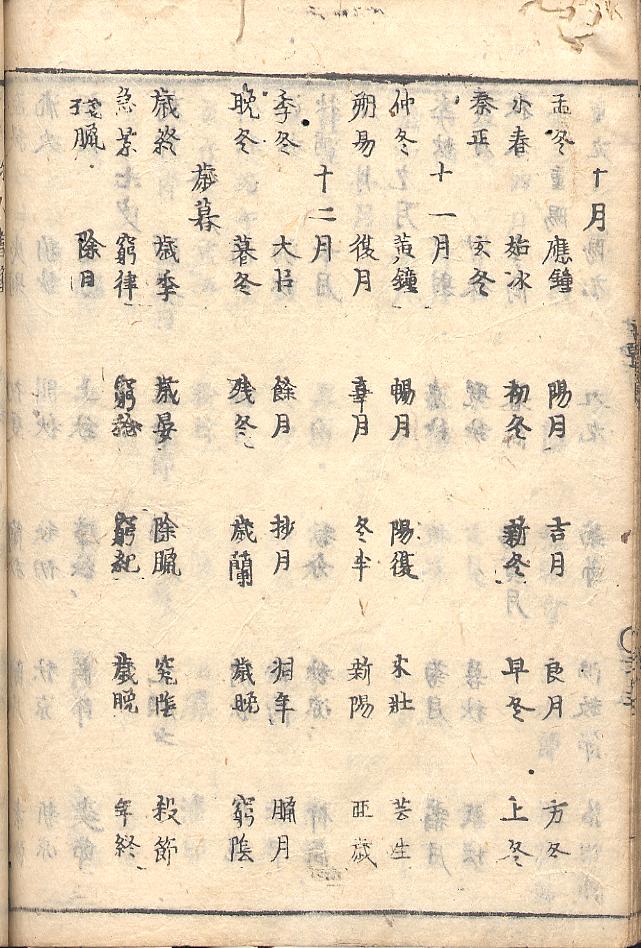 十月
孟冬 應鐘 陽月 吉月 良月 方冬
小春 始冰 初冬 新冬 早冬 上冬
秦正 玄冬
十一月
仲冬 黃鐘 暢月 陽復 氷壯 芸生
朔易 復月 辜月 冬半 新陽 亞歲
十二月
季冬 大呂 餘月 抄月 凋年 臘月
晚冬 暮冬 残冬 歲蘭 歲晩 窮陰
歲暮
歲終 歲季 歲晏 除臘 窮陰 殺節
急景 窮律 窮紀 歲晼 年終
殘臘 除日